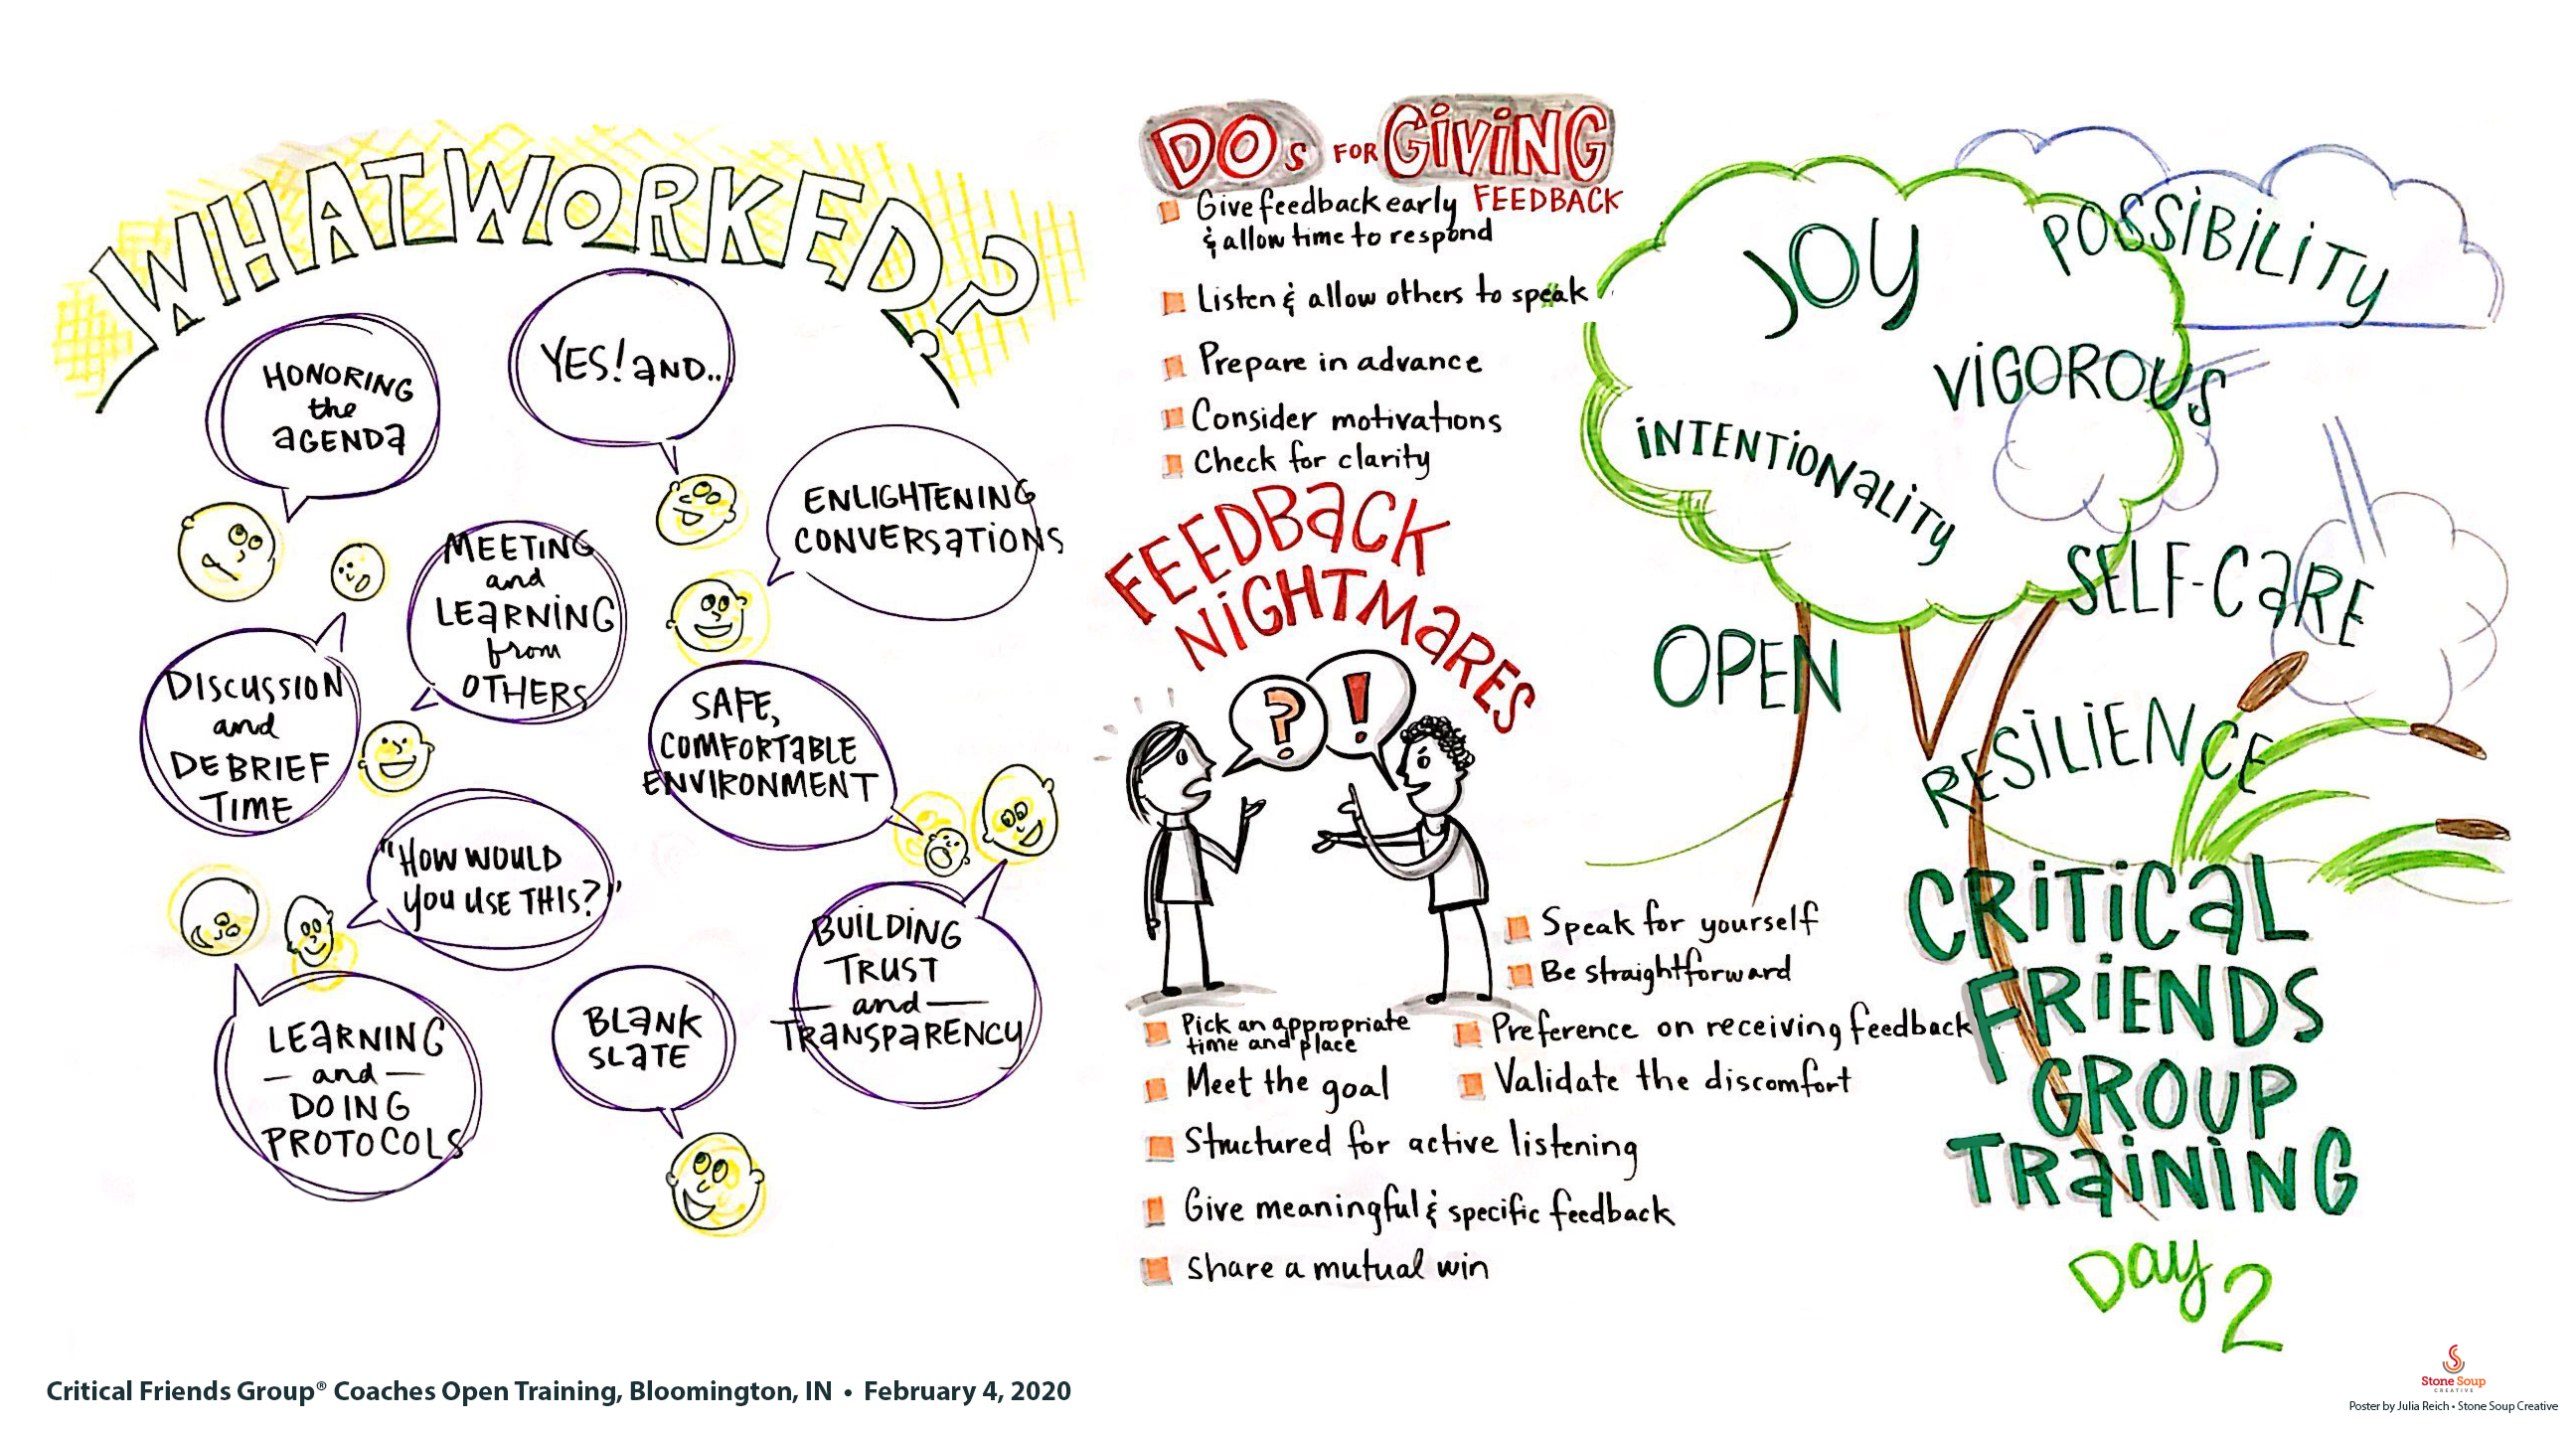 WHAT WORKED?
HONORING
the
AGENDA
YES! AND..
ENLIGHTENING
CONVERSATIONS
MEETING
and
LEARNING
from
OTHERS
DISCUSSION
and
DEBRIEF
TIME
SAFE,
COMFORTABLE
ENVIRONMENT
"HOW WOULD
YOU USE THIS?"
BUILDING
TRUST
and
TRANSPARENCY
LEARNING
and
DOING
PROTOCOLS
BLANK
SLATE
DOs FOR GIVING
FEEDBACK
Give feedback early
& allow time to respond
Listen & allow others to speak
Prepare in advance
Consider motivations
Check for clarity
FEEDBACK
NIGHTMARES
?
!
Speak for yourself
Be straightforward
Pick an appropriate
time and place
Preference on receiving feedback
Meet the goal
Validate the discomfort
Structured for active listening
Give meaningful & specific feedback
Share a mutual win
JOY
POSSIBILITY
VIGOROUS
INTENTIONALITY
SELF-CARE
OPEN
RESILIENCE
CRITICAL
FRIENDS
GROUP
TRAINING
Day 2
Critical Friends Group® Coaches Open Training, Bloomington, IN • February 4, 2020
Stone Soup
CREATIVE
Poster by Julia Reich • Stone Soup Creative